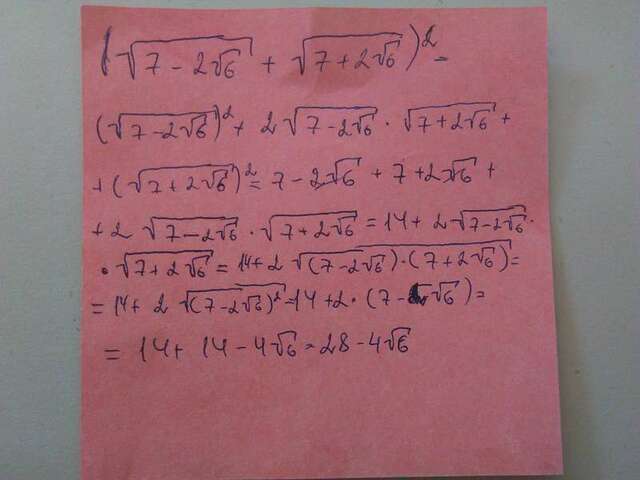 (√(7 - 2√6) + √(7 + 2√6))² =
(√(7 - 2√6))² + 2√(7 - 2√6) · √(7 + 2√6) +
+ (√(7 + 2√6))² = 7 - 2√6 + 7 + 2√6 +
+ 2√(7 - 2√6) · √(7 + 2√6) = 14 + 2√(7 - 2√6) ·
· √(7 + 2√6) = 14 + 2√((7 - 2√6) · (7 + 2√6)) =
= 14 + 2√((7 - 2√6)²) = 14 + 2 · (7 - 2√6) =
= 14 + 14 - 4√6 = 28 - 4√6